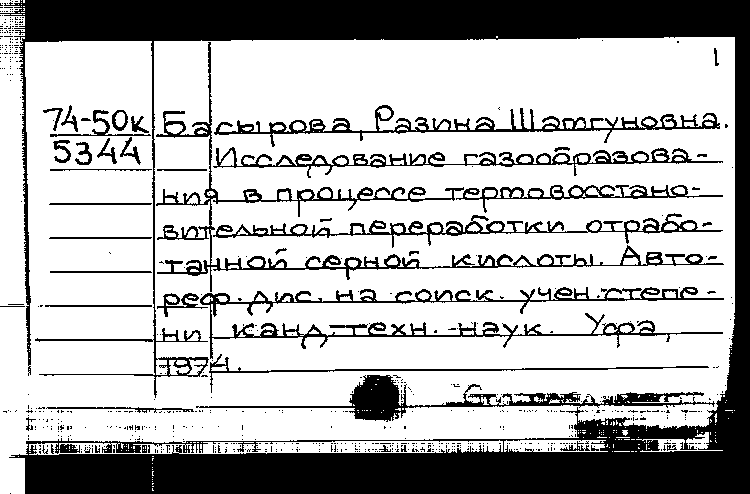 1
74-50к Басырова, Разина Шатгуновна.
5344 Исследование газообразова-
ния в процессе термовосстано-
вительной переработки отрабо-
танной серной кислоты. Авто-
реф. дис. на соиск. учен. степе-
ни канд. техн. наук. Уфа,
1974.